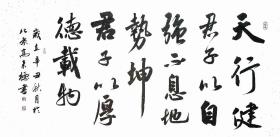 天行健
君子以自
強不息地
勢坤
君子以厚
德載物
歲在辛丑秋月於
北京高書